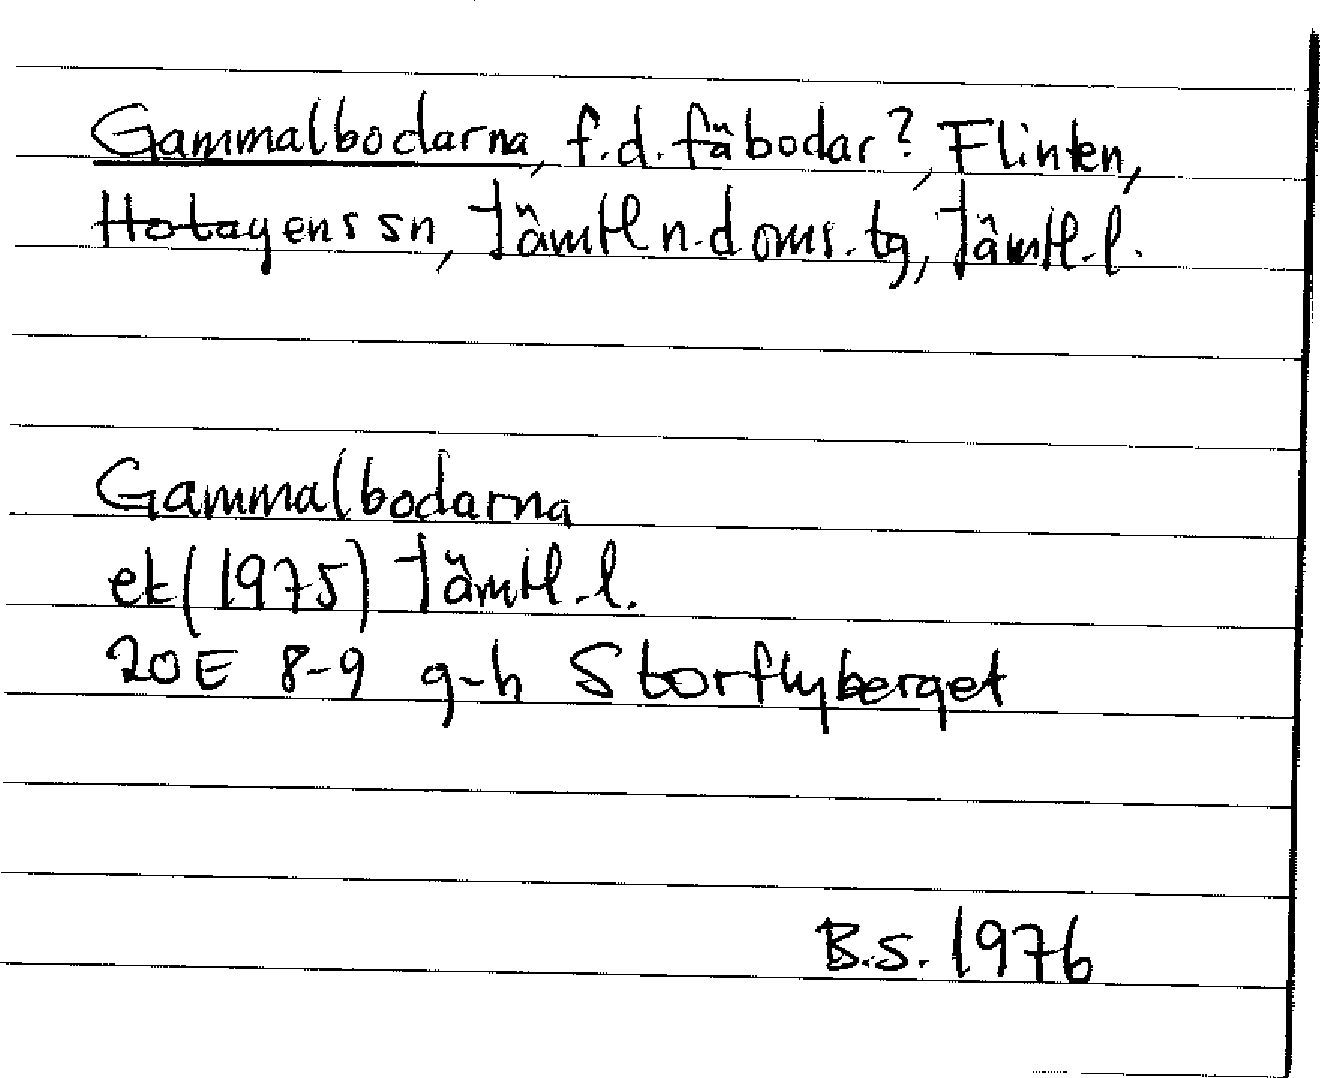 Gammalbodarna, f.d. fäbodar?, Flinten,
Hotagens sn, Jämtl n. doms. tg, Jämtl. l.
Gammalbodarna
ek (1975) Jämtl. l.
20E 8-9 g-h Storflyberget
B.S. 1976